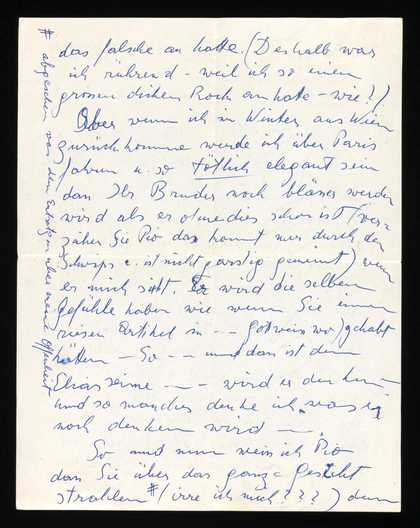 das falsche an hatte. (Deshalb war
ich rührend - weil ich so einen
grossen dicken Rock an hate - wie?)
Aber wenn ich im Winter aus Wien
zurückkomme werde ich über Paris
fahren u. so tötlich elegant sein
dass Ihr Bruder noch blässer werden
wird als er ohnedies schon ist (ver-
zeihen Sie Pio das kommt nur durch den
Schwips u. ist nicht garstig gemeint) wenn
er mich sieht. Er wird die selben
Gefühle haben wie wenn Sie einen
riesen Artikel in -- Gott weis wo) gehabt
hätten - So -- und dan ist dem
-- wird er den
und so manches denke ich was er
noch denken wird -
So und nun weis ich Pio
dass Sie über das ganze Gesicht
strahlen # (irre ich mich???) denn
# abgesehen von dem Entsetzen über meine Offenheit